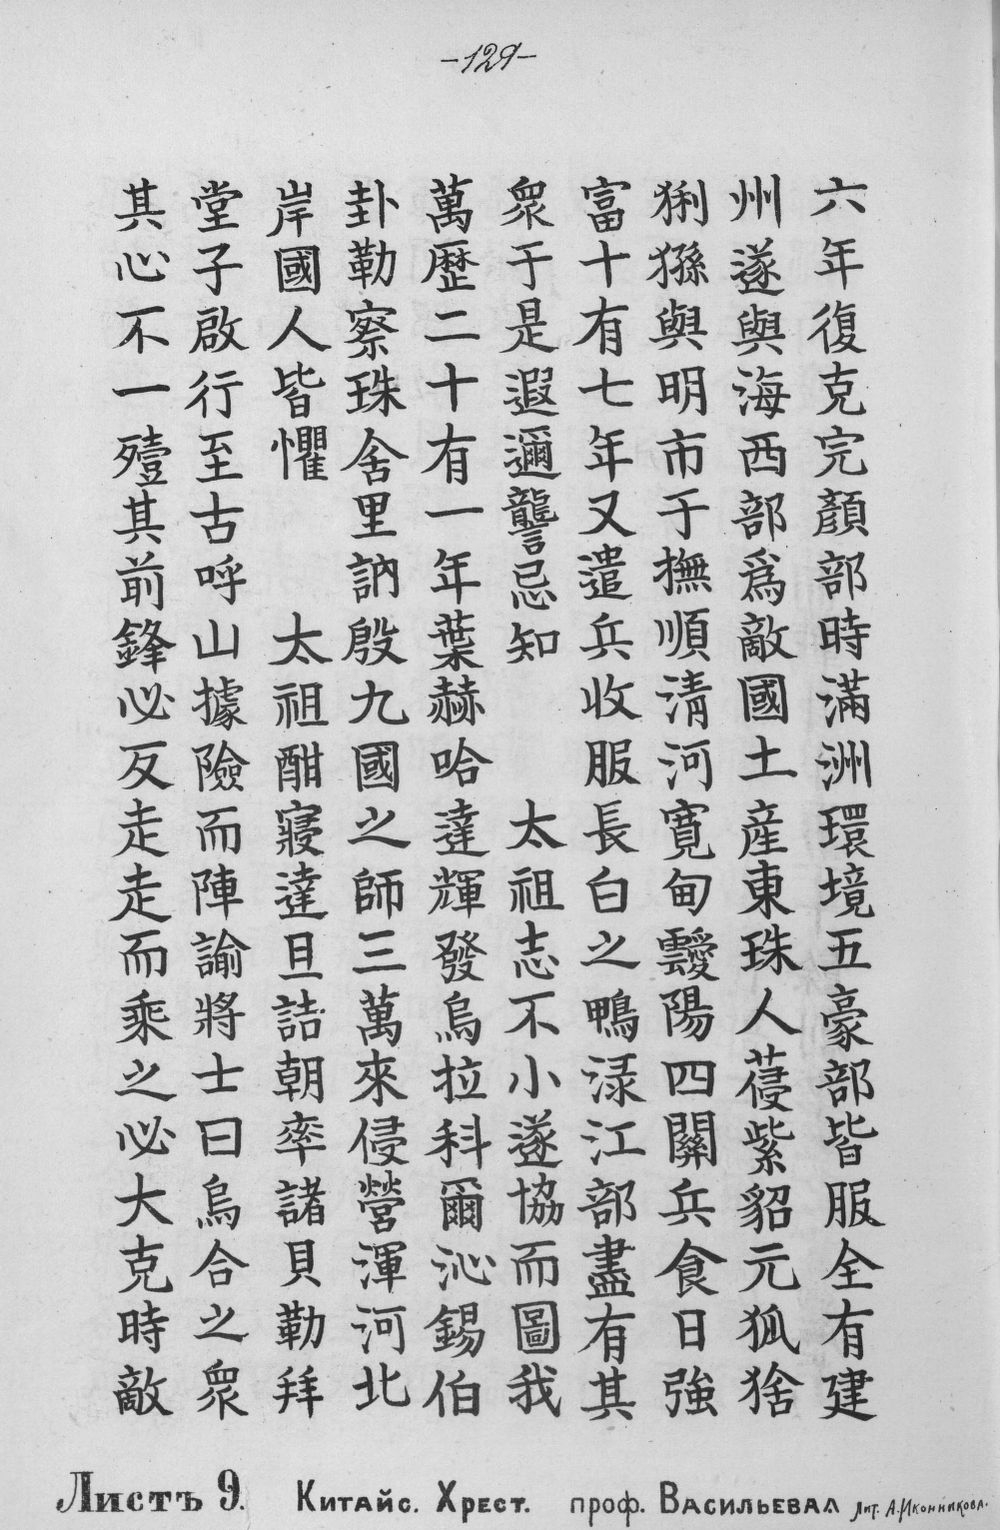 -129-
六年復克完顏部時滿洲環境五豪部皆服全有建
州遂與海西部爲敵國土産東珠人葠紫貂元狐猞
猁猻與明市于撫順淸河寬甸靉陽四關兵食日強
富十有七年又遣兵收服長白之鴨淥江部盡有其
衆于是遐邇讋忌知 太祖志不小遂協而圖我
萬歷二十有一年葉赫哈達輝發烏拉科爾沁錫伯
卦勒察珠舍里訥殷九國之師三萬來侵營渾河北
岸國人皆懼 太祖酣寢達旦詰朝率諸貝勒拜
堂子啟行至古呼山據險而陣諭將士曰烏合之衆
其心不一殪其前鋒必反走走而乘之必大克時敵
Листъ 9. Китайс. Хрест. проф. Васильева Лит. А. Иконникова.